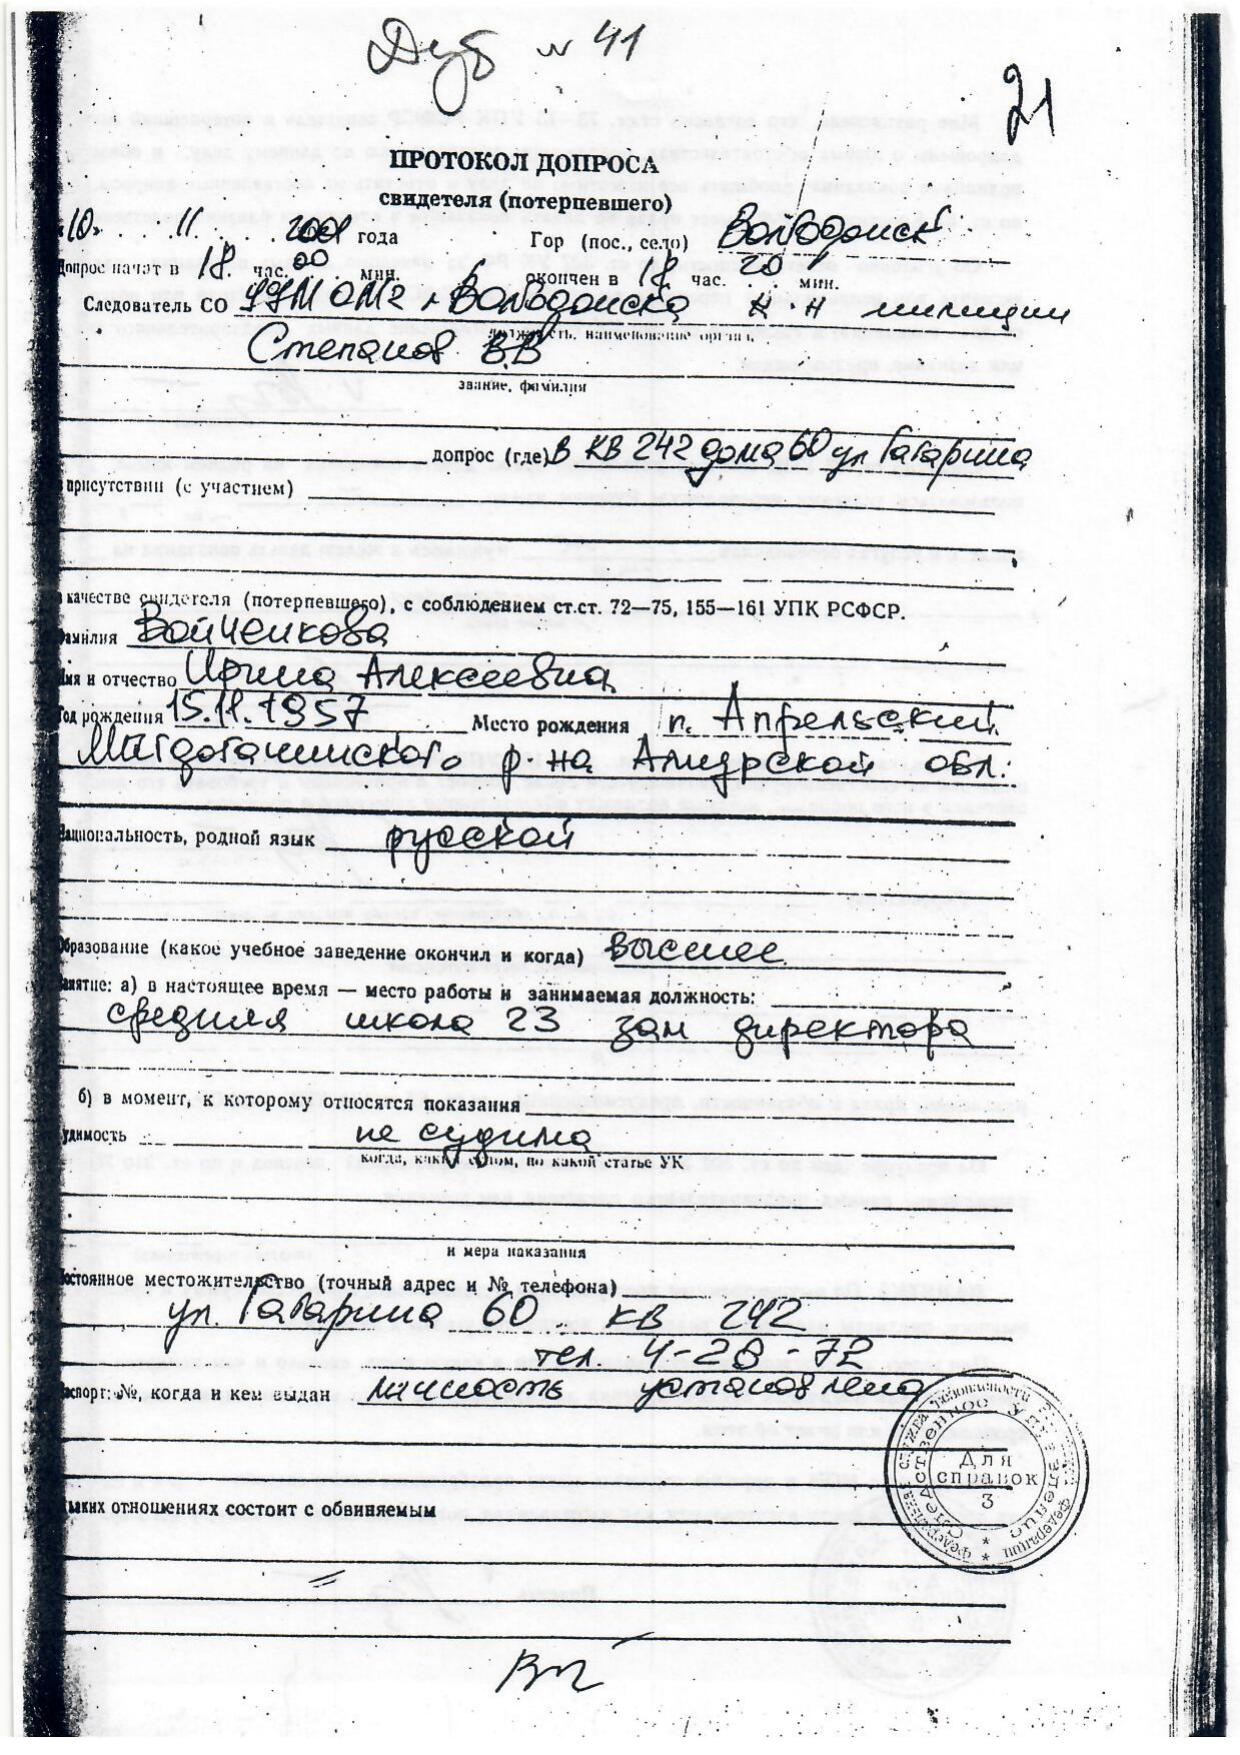 Дуб № 41
21
ПРОТОКОЛ ДОПРОСА
свидетеля (потерпевшего)
«10» 11 2001 года Гор (пос., село) Волгодонск
Допрос начат в 18 час. 00 мин. окончен в 18 час. 20 мин.
Следователь СО УУМ ОМ2 г Волгодонска к-н милиции
должность, наименование органа,
Степанов ВВ
звание, фамилия
допрос (где) в кв 242 дома 60 ул Гагарина
в присутствии (с участием)
в качестве свидетеля (потерпевшего), с соблюдением ст.ст. 72—75, 155—161 УПК РСФСР.
Фамилия Войченкова
Имя и отчество Ирина Алексеевна
Год рождения 15.11.1957 Место рождения п. Апрельский
Магдагачинского р-на Амурской обл.
Национальность, родной язык русской
Образование (какое учебное заведение окончил и когда) высшее
Занятие: а) в настоящее время — место работы и занимаемая должность:
средняя школа 23 зам директора
б) в момент, к которому относятся показания
Судимость не судима
когда, каким судом, по какой статье УК
и мера наказания
Постоянное местожительство (точный адрес и № телефона)
ул. Гагарина 60 кв 242
тел. 4-20-72
Паспорт: №, когда и кем выдан личность установлена
Федеральная служба безопасности Российской Федерации
Следственное управление
Для
справок
3
В каких отношениях состоит с обвиняемым